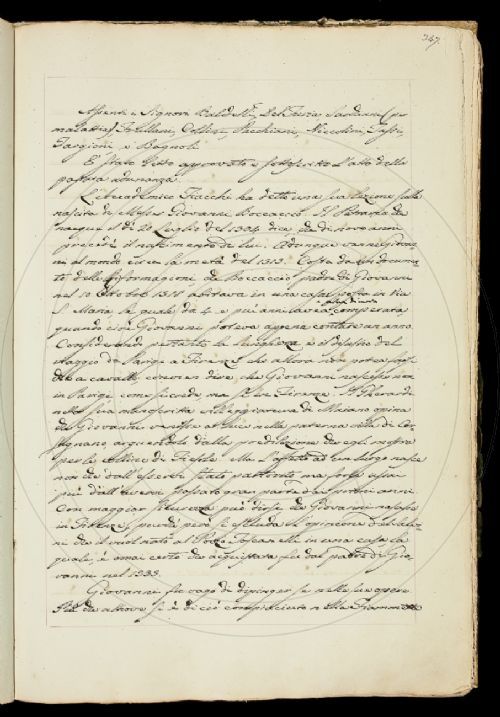 247.
Assenti i Signori Baldelli, Del Furia, Sarchiani (per
malattia) Fiacchi, Collini, Niccolini,
Targioni e Bagnoli.
È stato letto approvato e sottoscritto l'atto della
passata adunanza.
L'Accademico Fiacchi ha detto una sua lezione sulla
nascita di Messer Giovanni Boccaccio. Il Petrarca che
nacque il dì 20 Luglio del 1304 dice, che di nove anni
precedè il nascimento di lui. Adunque venne Giovan-
ni al mondo circa la metà del 1313. Costa da un documen-
to delle Riformagioni che Boccaccio padre di Giovanni
nel 10 Ottobre 1318 abitava in una casa posta in Via
S. Maria la quale da 4 e più anni aveva comperata
quando cioè Giovanni poteva appena contare un anno.
Considerando pertanto la lunghezza e il disastro del
viaggio da Parigi a Firenze, che allora non potea
a cavallo, convien dire che Giovanni nascesse non
in Parigi come si crede, ma in Firenze. Il Gherardi
nota sua manoscritta alla di Maiano opina
che Giovanni venisse a luce nella paterna villa di Cor-
bignano, arguendolo dalla predilezione che egli mostra
per le colline di Fiesole. Ma l'affetto ad un luogo nasce
non già dall'esservi stato partorito, ma forse assai
più dall'avervi passato gran parte de' primi anni.
Con maggior sicurezza può dirsi che Giovanni nascesse
in Firenze, purchè però si escluda l'opinione d'alcu-
ni che il vuol nato al Pozzo Toscanelli in una casa la
quale, è omai certo che acquistata fu dal padre di Gio-
vanni nel 1333.
Giovanni fu vago di dipinger se nelle sue opere
Più che altrove si è di ciò compiaciuto nella Fiammetta